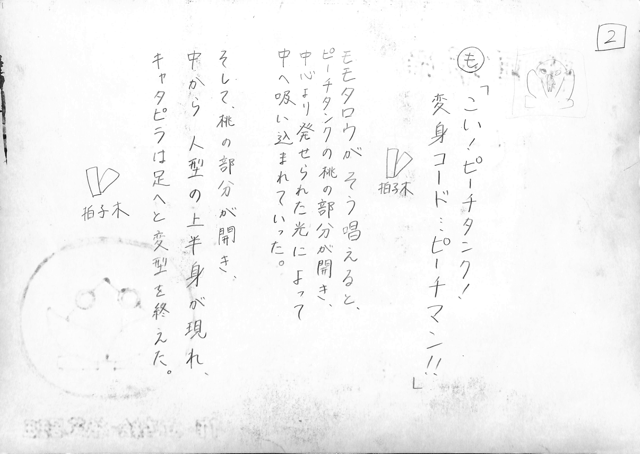 2
も「こい!ピーチタンク!
変身コード…ピーチマン!!」
拍子木
モモタロウがそう唱えると、
ピーチタンクの桃の部分が開き、
中心より発せられた光によって
中へ吸い込まれていった。
そして、桃の部分が開き、
中から人型の上半身が現れ、
キャタピラは足へと変型を終えた。
拍子木